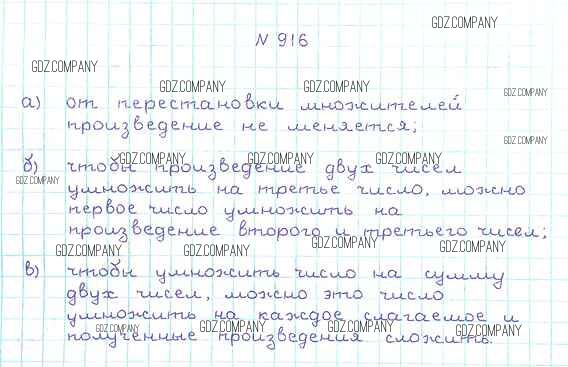 GDZ.COMPANY
N 916
GDZ.COMPANY
GDZ.COMPANY GDZ.COMPANY GDZ.COMPANY
а) от перестановки множителей
произведение не меняется;
GDZ.COMPANY
GDZ.COMPANY GDZ.COMPANY GDZ.COMPANY
б) чтобы произведение двух чисел
GDZ.COMPANY
умножить на третье число, можно
первое число умножить на
произведение второго и третьего чисел;
GDZ.COMPANY GDZ.COMPANY GDZ.COMPANY GDZ.COMPANY
в) чтобы умножить число на сумму
двух чисел, можно это число
умножить на каждое слагаемое и
GDZ.COMPANY GDZ.COMPANY GDZ.COMPANY GDZ.COMPANY
полученные произведения сложить.